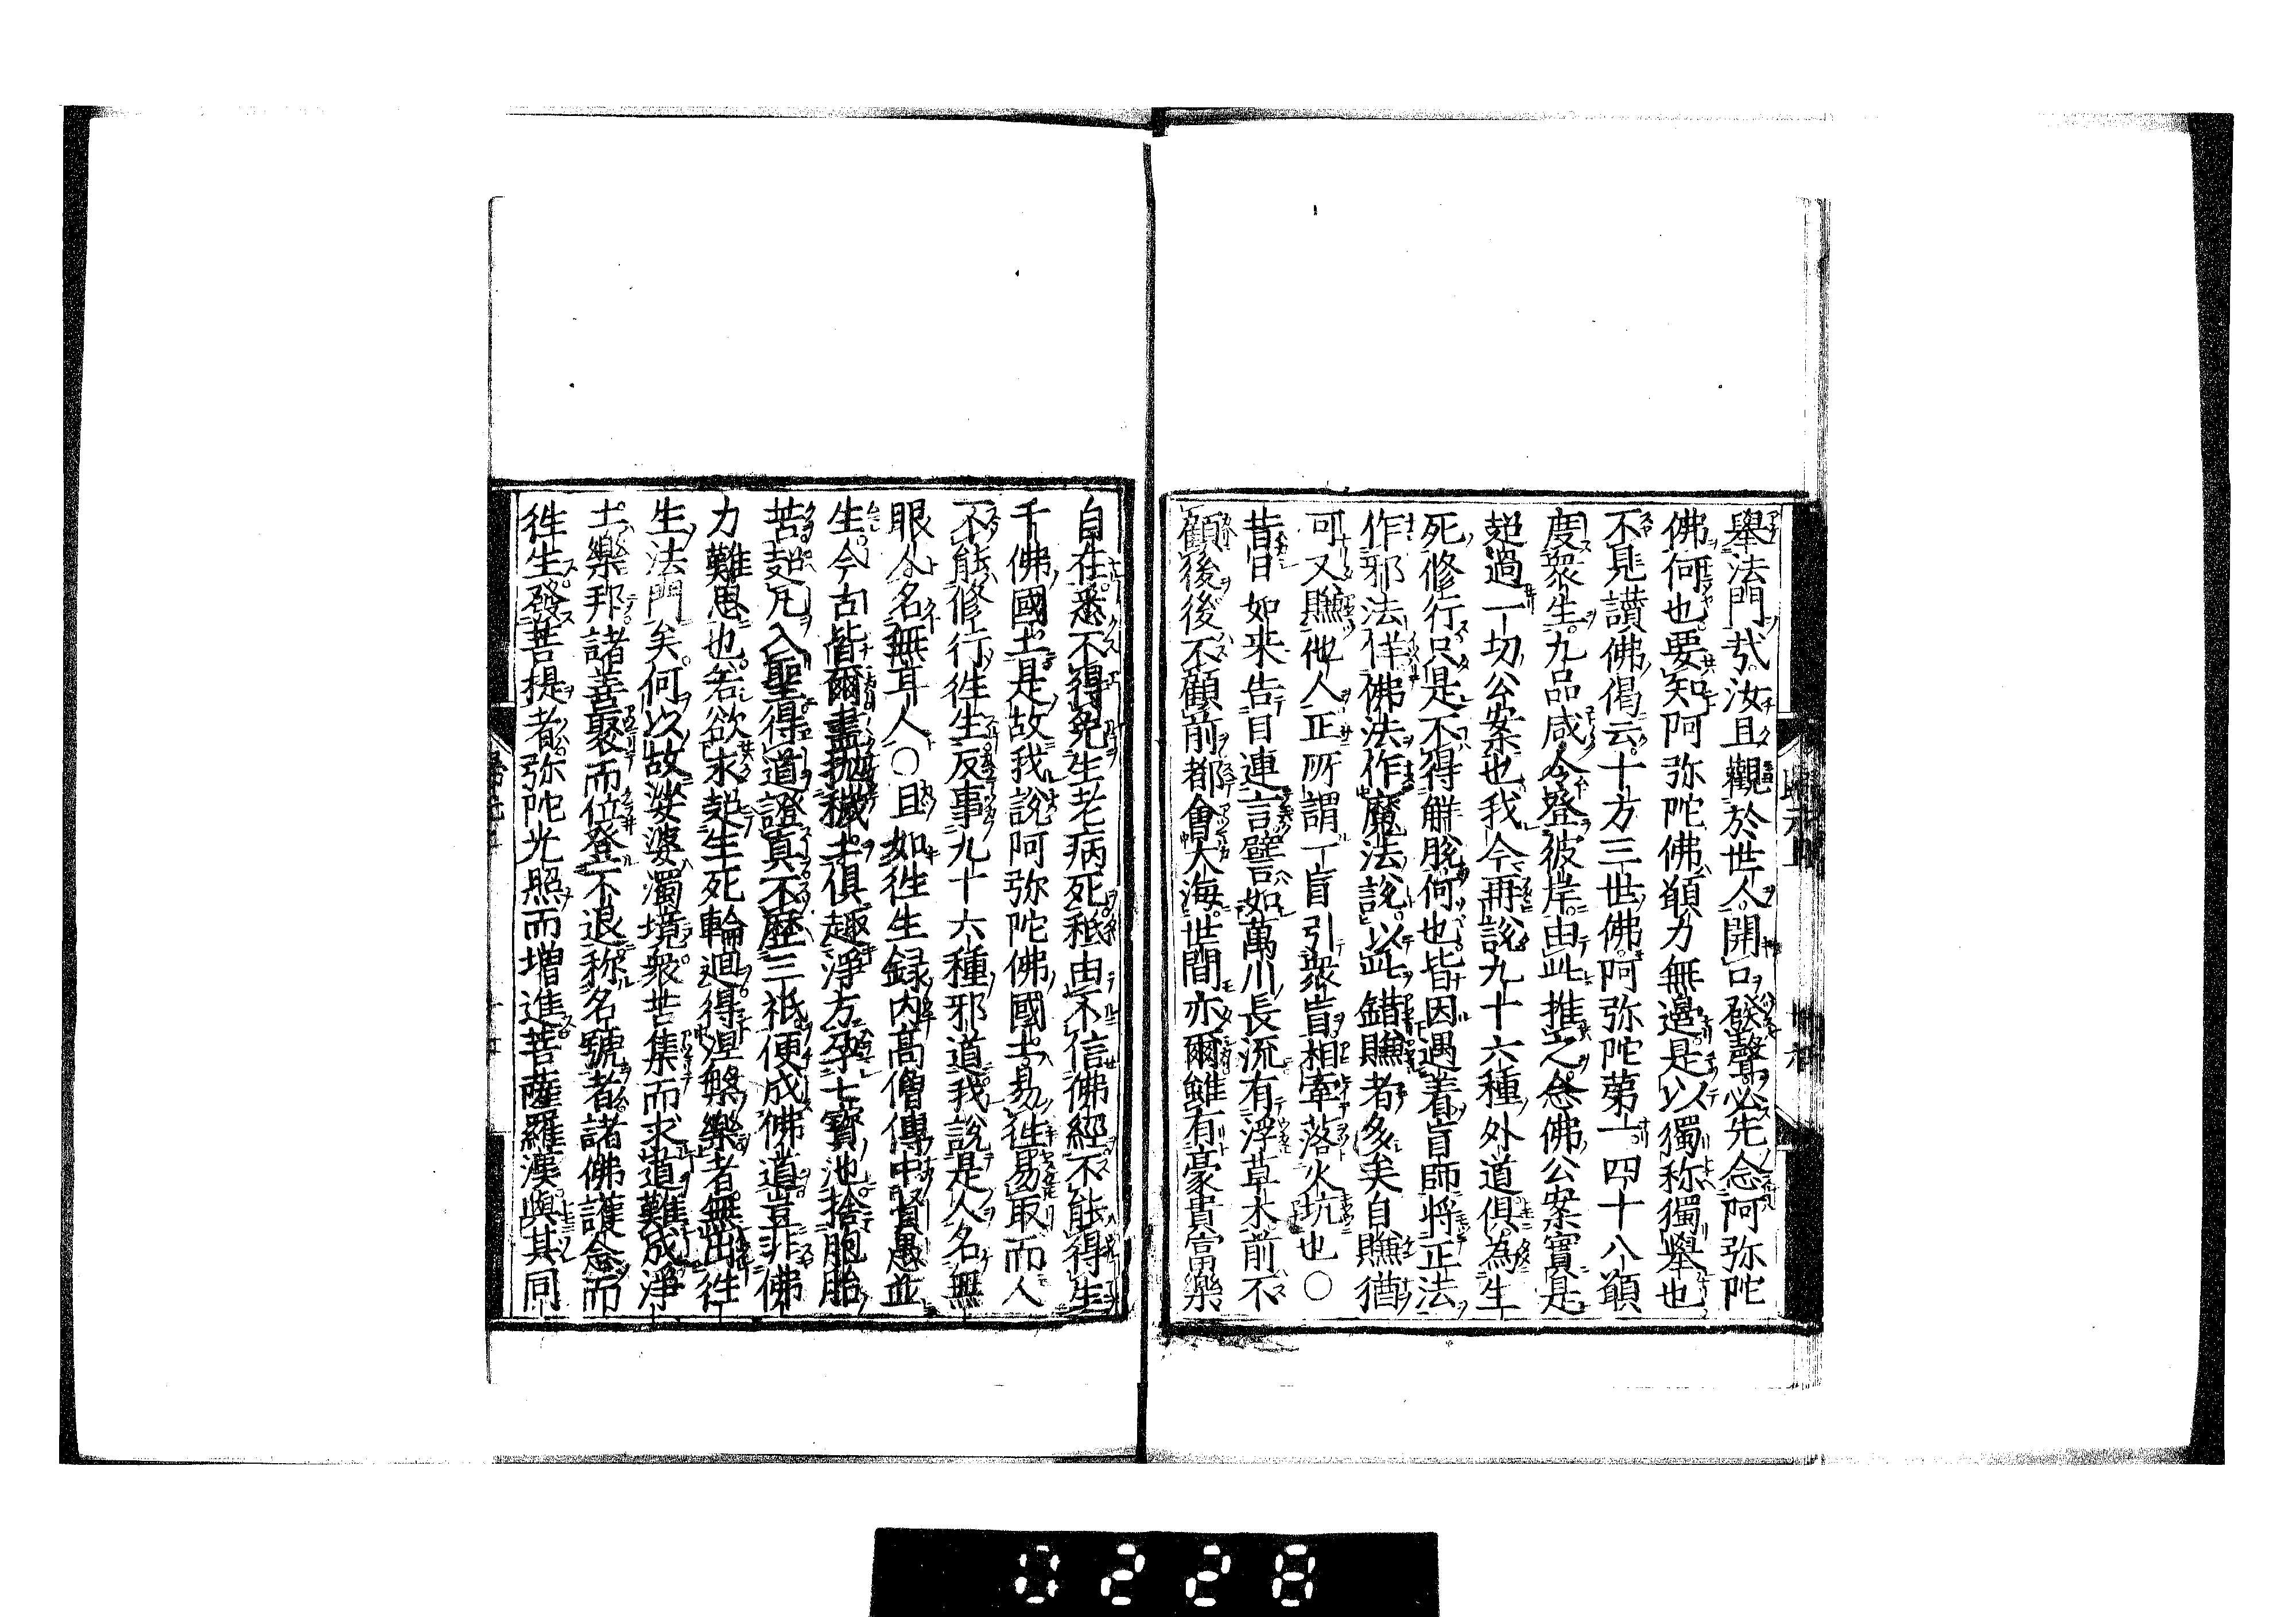 舉法門㢤汝且觀於世人開口發聲必先念阿弥陀
佛何也要知阿弥陀佛願力無邉是以獨称獨舉也
不見讃佛偈云十方三世佛阿弥陀第一四十八願
度衆生九品咸令登彼岸由此推之念佛公案實是
超過一切公案也我今再説九十六種外道俱為生
死修行只是不得解脱何也皆因遇着盲師将正法
作邪法佯佛法作魔法説以此錯賺者多矣自賺猶
可又賺他人正所謂一盲引衆盲相牽落火坑也○
昔日如来告目連言譬如萬川長流有浮草木前不
顧後後不顧前都會大海世間亦爾雖有豪貴冨樂
自在悉不得免生老病死秪由不信佛經不能得生
千佛國土是故我説阿弥陀佛國土易徃易取而人
不能修行徃生反事九十六種邪道我説是人名無
眼人名無耳人○且如徃生録内髙僧傳中賢愚並
生今古皆爾盡抛穢土俱趣淨方孕七寶池捨胞胎
苦超凡入聖得道證真不歴三祇便成佛道豈非佛
力難思也若欲求超生死輪迴得涅槃樂者無出徃
生法門矣何以故娑婆濁境衆苦集而求道難成淨
土樂邦諸善聚而位登不退称名號者諸佛護念而
徃生發菩提者弥陀光照而増進菩薩羅漢與其同
0228